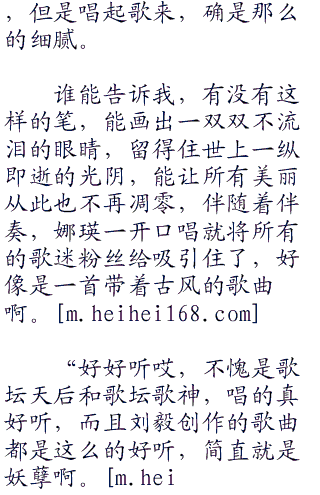 ，但是唱起歌来，确是那么
的细腻。
谁能告诉我，有没有这
样的笔，能画出一双双不流
泪的眼睛，留得住世上一纵
即逝的光阴，能让所有美丽
从此也不再凋零，伴随着伴
奏，娜瑛一开口唱就将所有
的歌迷粉丝给吸引住了，好
像是一首带着古风的歌曲
啊。[m.heihei168.com]
“好好听哎，不愧是歌
坛天后和歌坛歌神，唱的真
好听，而且刘毅创作的歌曲
都是这么的好听，简直就是
妖孽啊。[m.hei